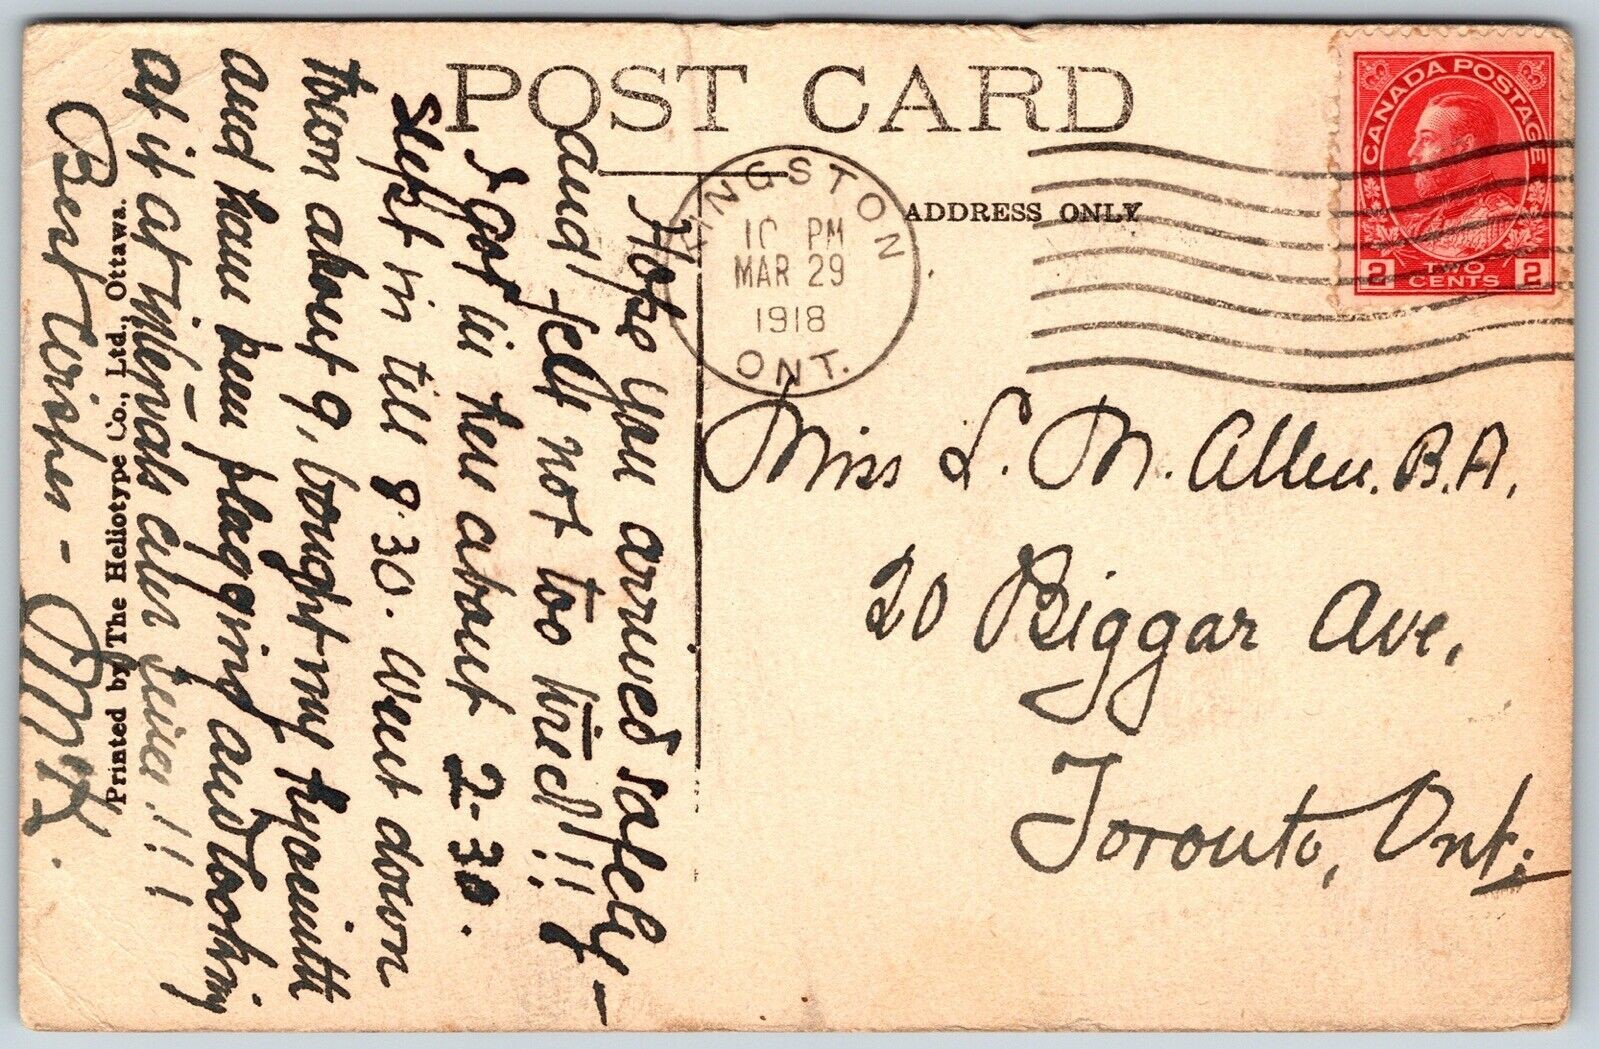 POST CARD
ADDRESS ONLY
CANADA POSTAGE
2 TWO CENTS 2
KINGSTON
10 PM
MAR 29
1918
ONT.
Miss L. M. Allen. B.A.
20 Biggar Ave,
Toronto, Ont.
Hope you arrived safely –
and felt not too tired!!!
I got in here about 2-30.
Slept in till 8.30. Went down
town about 9, bought my hyacinth
and have been plagging and looking
at it at intervals ever since!!!
Best Wishes –
Printed by The Heliotype Co., Ltd., Ottawa.